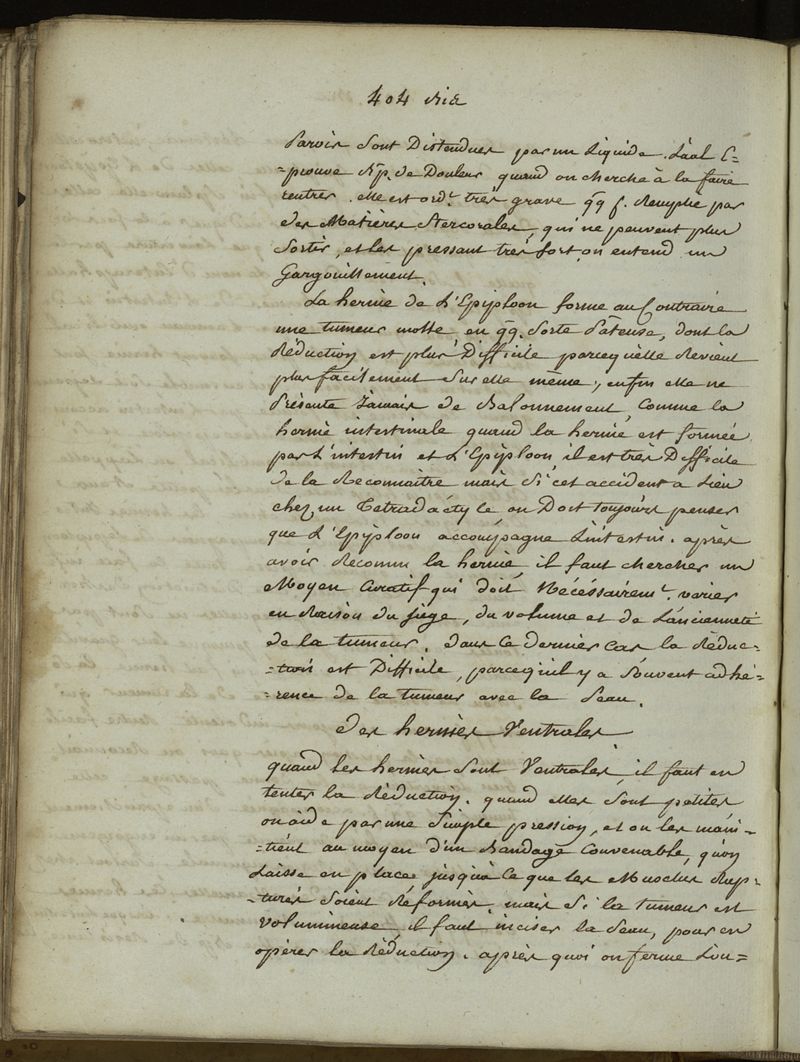 404 bis
Parois Sont Distendues par un Liquide. L'aal E=
=prouve p. de Douleur quand on cherche à la faire
rentrer. elle est ord.t très grave qq f. Remplie par
des Matières Stercorales, qui ne peuvent plus
Sortir, et les pressant très fort, on entend un
Gargouillement.
La hernie de L'Epiploon forme au Contraire
une tumeur molle en qq. Sorte Pâteuse, dont la
Réduction est plus Difficile parcequ'elle Revient
plus facilement Sur elle même, enfin elle ne
Présente Jamais de Balonnement Comme la
hernie intestinale quand la hernie est formée
par L'intestin et L'Epiploon il est très Difficile
de la Reconnaître mais Si cet accident a Lieu
chez un Tetradactyle on Doit toujours penser
que L'Epiploon accompagne L'intestin. après
avoir Reconnu la hernie, il faut chercher un
Moyen Curatif qui doit Nécéssairem.t varier
en Raison du siège, du volume et de L'ancienneté
de la tumeur. dans Ce dernier cas la Réduc=
=tion est Difficile, parcequ'il y a Souvent adhé=
=rence de la tumeur avec la Peau.
des hernies Ventrales
quand les hernies Sont Ventrales, il faut en
tenter la Réduction. quand elles Sont petites,
on aide par une Simple pression, et on les main=
=tient au moyen d'un Bandage Convenable, qu'on
Laisse en place jusqu'à ce que les Muscles Rup=
=turés Soient Réformés. mais Si la tumeur est
volumineuse, il faut inciser la Peau, pour en
opérer la Réduction. après quoi on ferme L'ou=